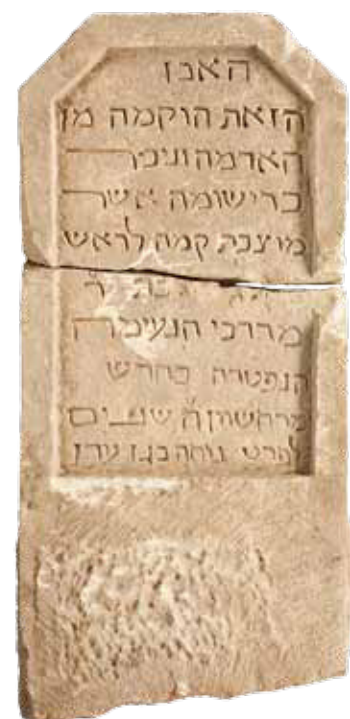 האבן
הזאת הוקמה מן
האדמה וניכר
ברישומה אשר
מוצבת קמה לראש
מרדכי הנעימה
הנפטרה בחדש
מרחשון ה שנים
לפרט נוחה בגן עדן